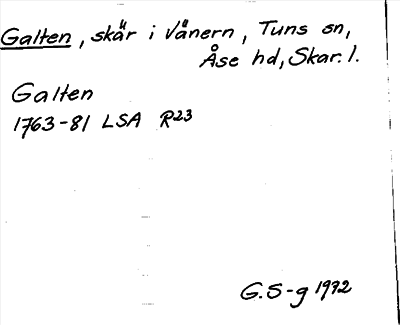 Galten, skär i Vänern, Tuns sn,
Åse hd, Skar. l.
Galten
1763-81 LSA R23
G.S-g 1972